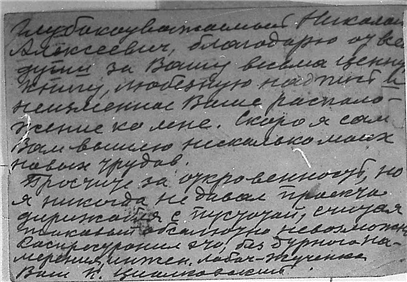 Глубокоуважаемый Николай
Алексеевич, благодарю от всей
души за Вашу весьма ценную
книгу, любезную надпись и
неизменное Ваше располо-
жение ко мне. Скоро я сам
Вам вышлю несколько моих
новых трудов.
Простите за откровенность, но
я никогда не давал проекта
дирижабля с пустотой, считая
таковый абсолютно невозможн
Распространил это, без дурного на-
мерения, инжен.
Ваш К. Циолковский.